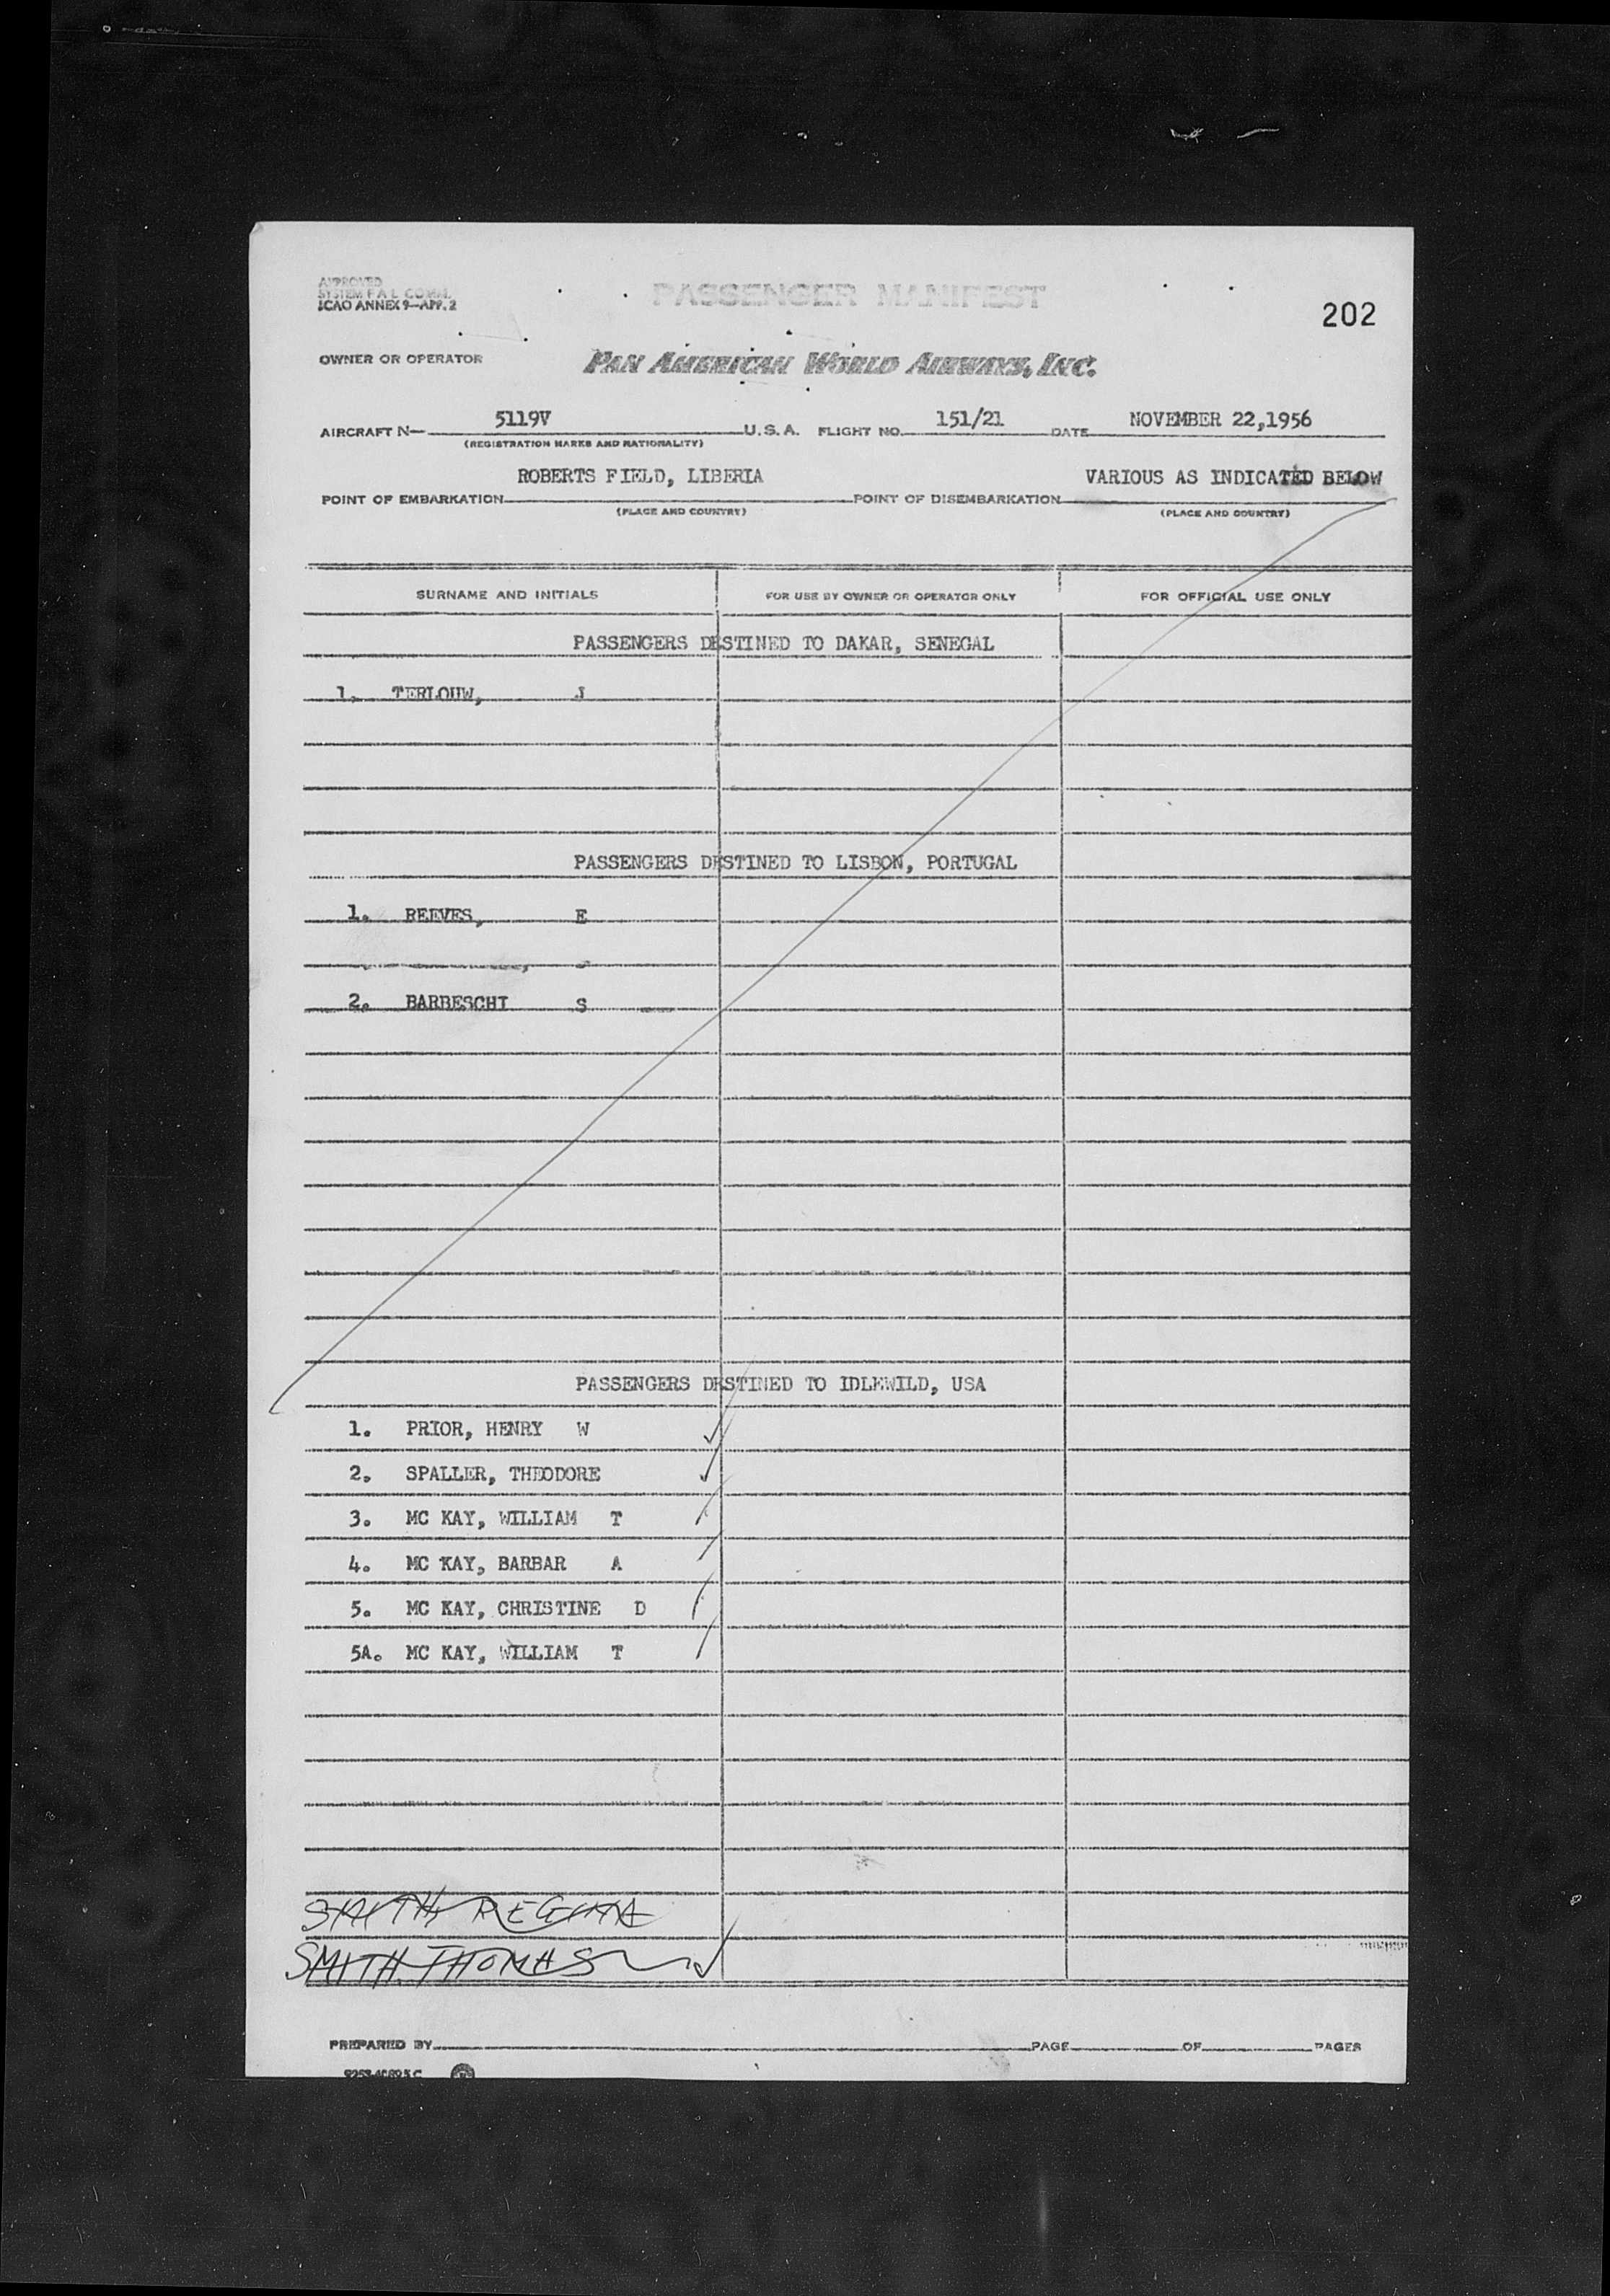 APPROVED
SYSTEM F A L COMM.
ICAO ANNEX 9—APP. 2
PASSENGER MANIFEST
202
OWNER OR OPERATOR PAN AMERICAN WORLD AIRWAYS, INC.
AIRCRAFT N— 5119V U.S.A. FLIGHT NO. 151/21 DATE NOVEMBER 22,1956
(REGISTRATION MARKS AND NATIONALITY)
POINT OF EMBARKATION ROBERTS FIELD, LIBERIA POINT OF DISEMBARKATION VARIOUS AS INDICATED BELOW
(PLACE AND COUNTRY) (PLACE AND COUNTRY)
SURNAME AND INITIALS FOR USE BY OWNER OR OPERATOR ONLY FOR OFFICIAL USE ONLY
PASSENGERS DESTINED TO DAKAR, SENEGAL
1. TERLOUW, J
PASSENGERS DESTINED TO LISBON, PORTUGAL
1. REEVES, E
2. BARBESCHI S
PASSENGERS DESTINED TO IDLEWILD, USA
1. PRIOR, HENRY W
2. SPALLER, THEODORE
3. MC KAY, WILLIAM T
4. MC KAY, BARBAR A
5. MC KAY, CHRISTINE D
5A. MC KAY, WILLIAM T
SMITH, REGINA
SMITH THOMAS
PREPARED BY PAGE OF PAGES